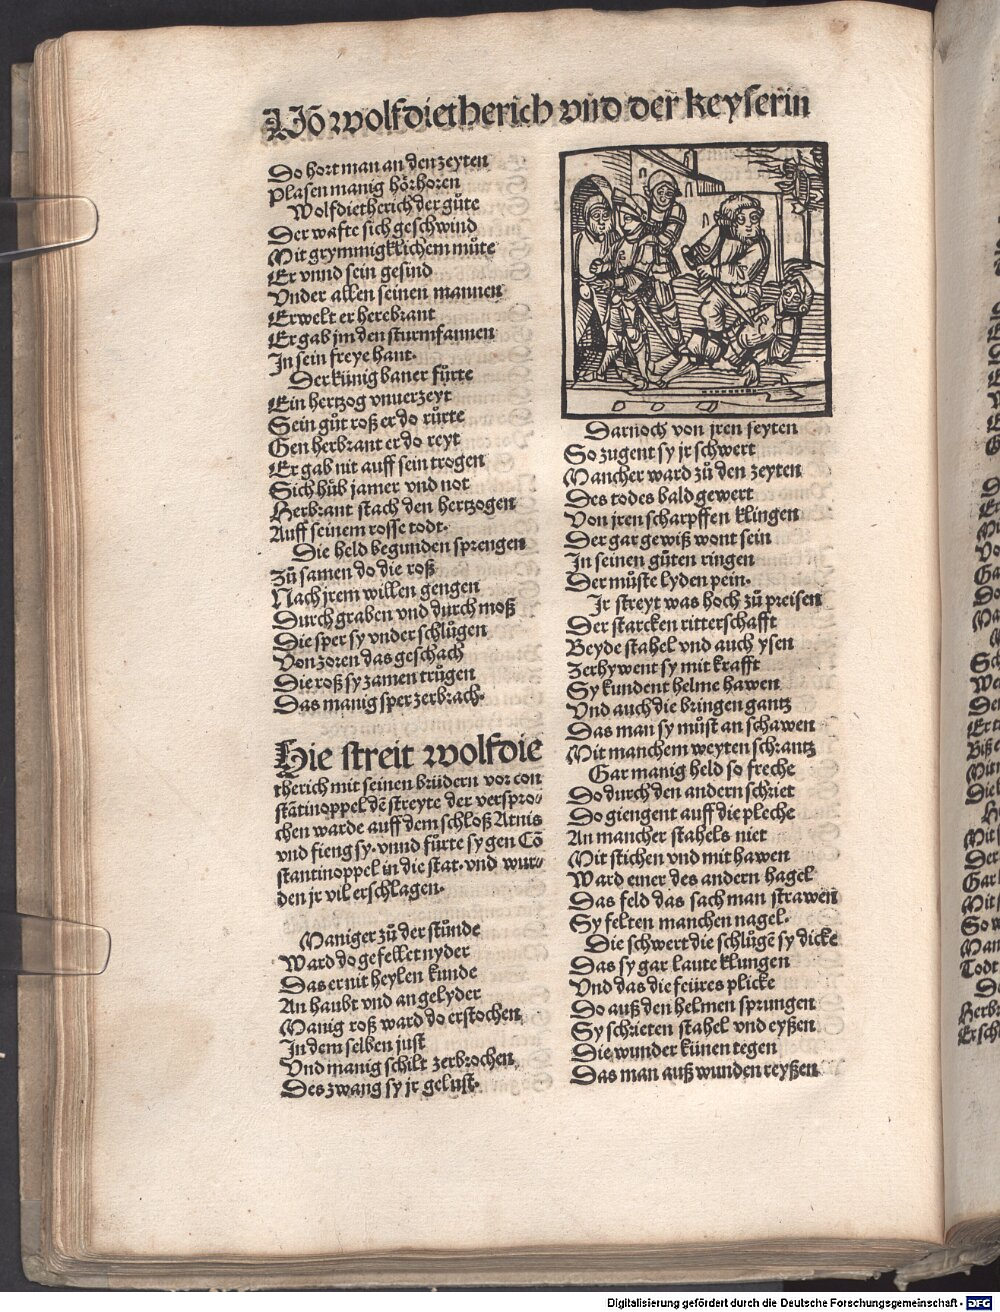 Võ wolfdietherich vnd der keyserin
Do hort man an den zeyten
Plasen manig hörhoren
Wolfdietherich der gůte
Der wafte sich geschwind
Mit grymmigklichem můte
Er vnnd sein gesind
Vnder allen seinen mannen
Erwelt er herebrant
Er gab jm den sturmfannen
In sein freye hant.
Der künig baner fůrte
Ein hertzog vnuerzeyt
Sein gůt roß er do růrte
Gen herbrant er do reyt
Er gab nit auff sein trogen
Sich hůb jamer vnd not
Herbrant stach den hertzogen
Auff seinem rosse todt.
Die held begunden sprengen
Zů samen do die roß
Nach jrem willen gengen
Durch graben vnd durch moß
Die sper sy vnder schlůgen
Von zoren das geschach
Die roß sy zamen trůgen
Das manig sper zerbrach.
Hie streit wolfdie
therich mit seinen brüdern vor con
stãtinoppel dẽ streyte der verspro-
chen warde auff dem schloß Atnis
vnd fieng sy. vnnd fůrte sy gen Cõ
stantinoppel in die stat. vnd wur-
den jr vil erschlagen.
Maniger zů der stůnde
Ward do gefellet nyder
Das er nit heylen kunde
An haubt vnd an gelyder
Manig roß ward do erstochen
In dem selben just
Vnd manig schilt zerbrochen
Des zwang sy jr gelust.
Darnoch von jren seyten
So zugent sy jr schwert
Mancher ward zů den zeyten
Des todes bald gewert
Von jren scharpffen klingen
Der gar gewiß wont sein
In seinen gůten ringen
Der můste lyden pein.
Ir streyt was hoch zů preisen
Der starcken ritterschafft
Beyde stahel vnd auch ysen
Zerhywent sy mit krafft
Sy kundent helme hawen
Vnd auch die bringen gantz
Das man sy můst an schawen
Mit manchem weyten schrantz
Gar manig held so freche
Do durch den andern schriet
Do giengent auff die pleche
An mancher stahels niet
Mit stichen vnd mit hawen
Ward einer des andern hagel
Das feld das sach man strawen
Sy felten manchen nagel.
Die schwert die schlůgẽ sy dicke
Das sy gar laute klungen
Vnd das die feüres plicke
Do auß den helmen sprungen
Sy schrieten stahel vnd eyßen
Die wunder künen tegen
Das man auß wunden reyßen
Digitalisierung gefördert durch die Deutsche Forschungsgemeinschaft - DFG